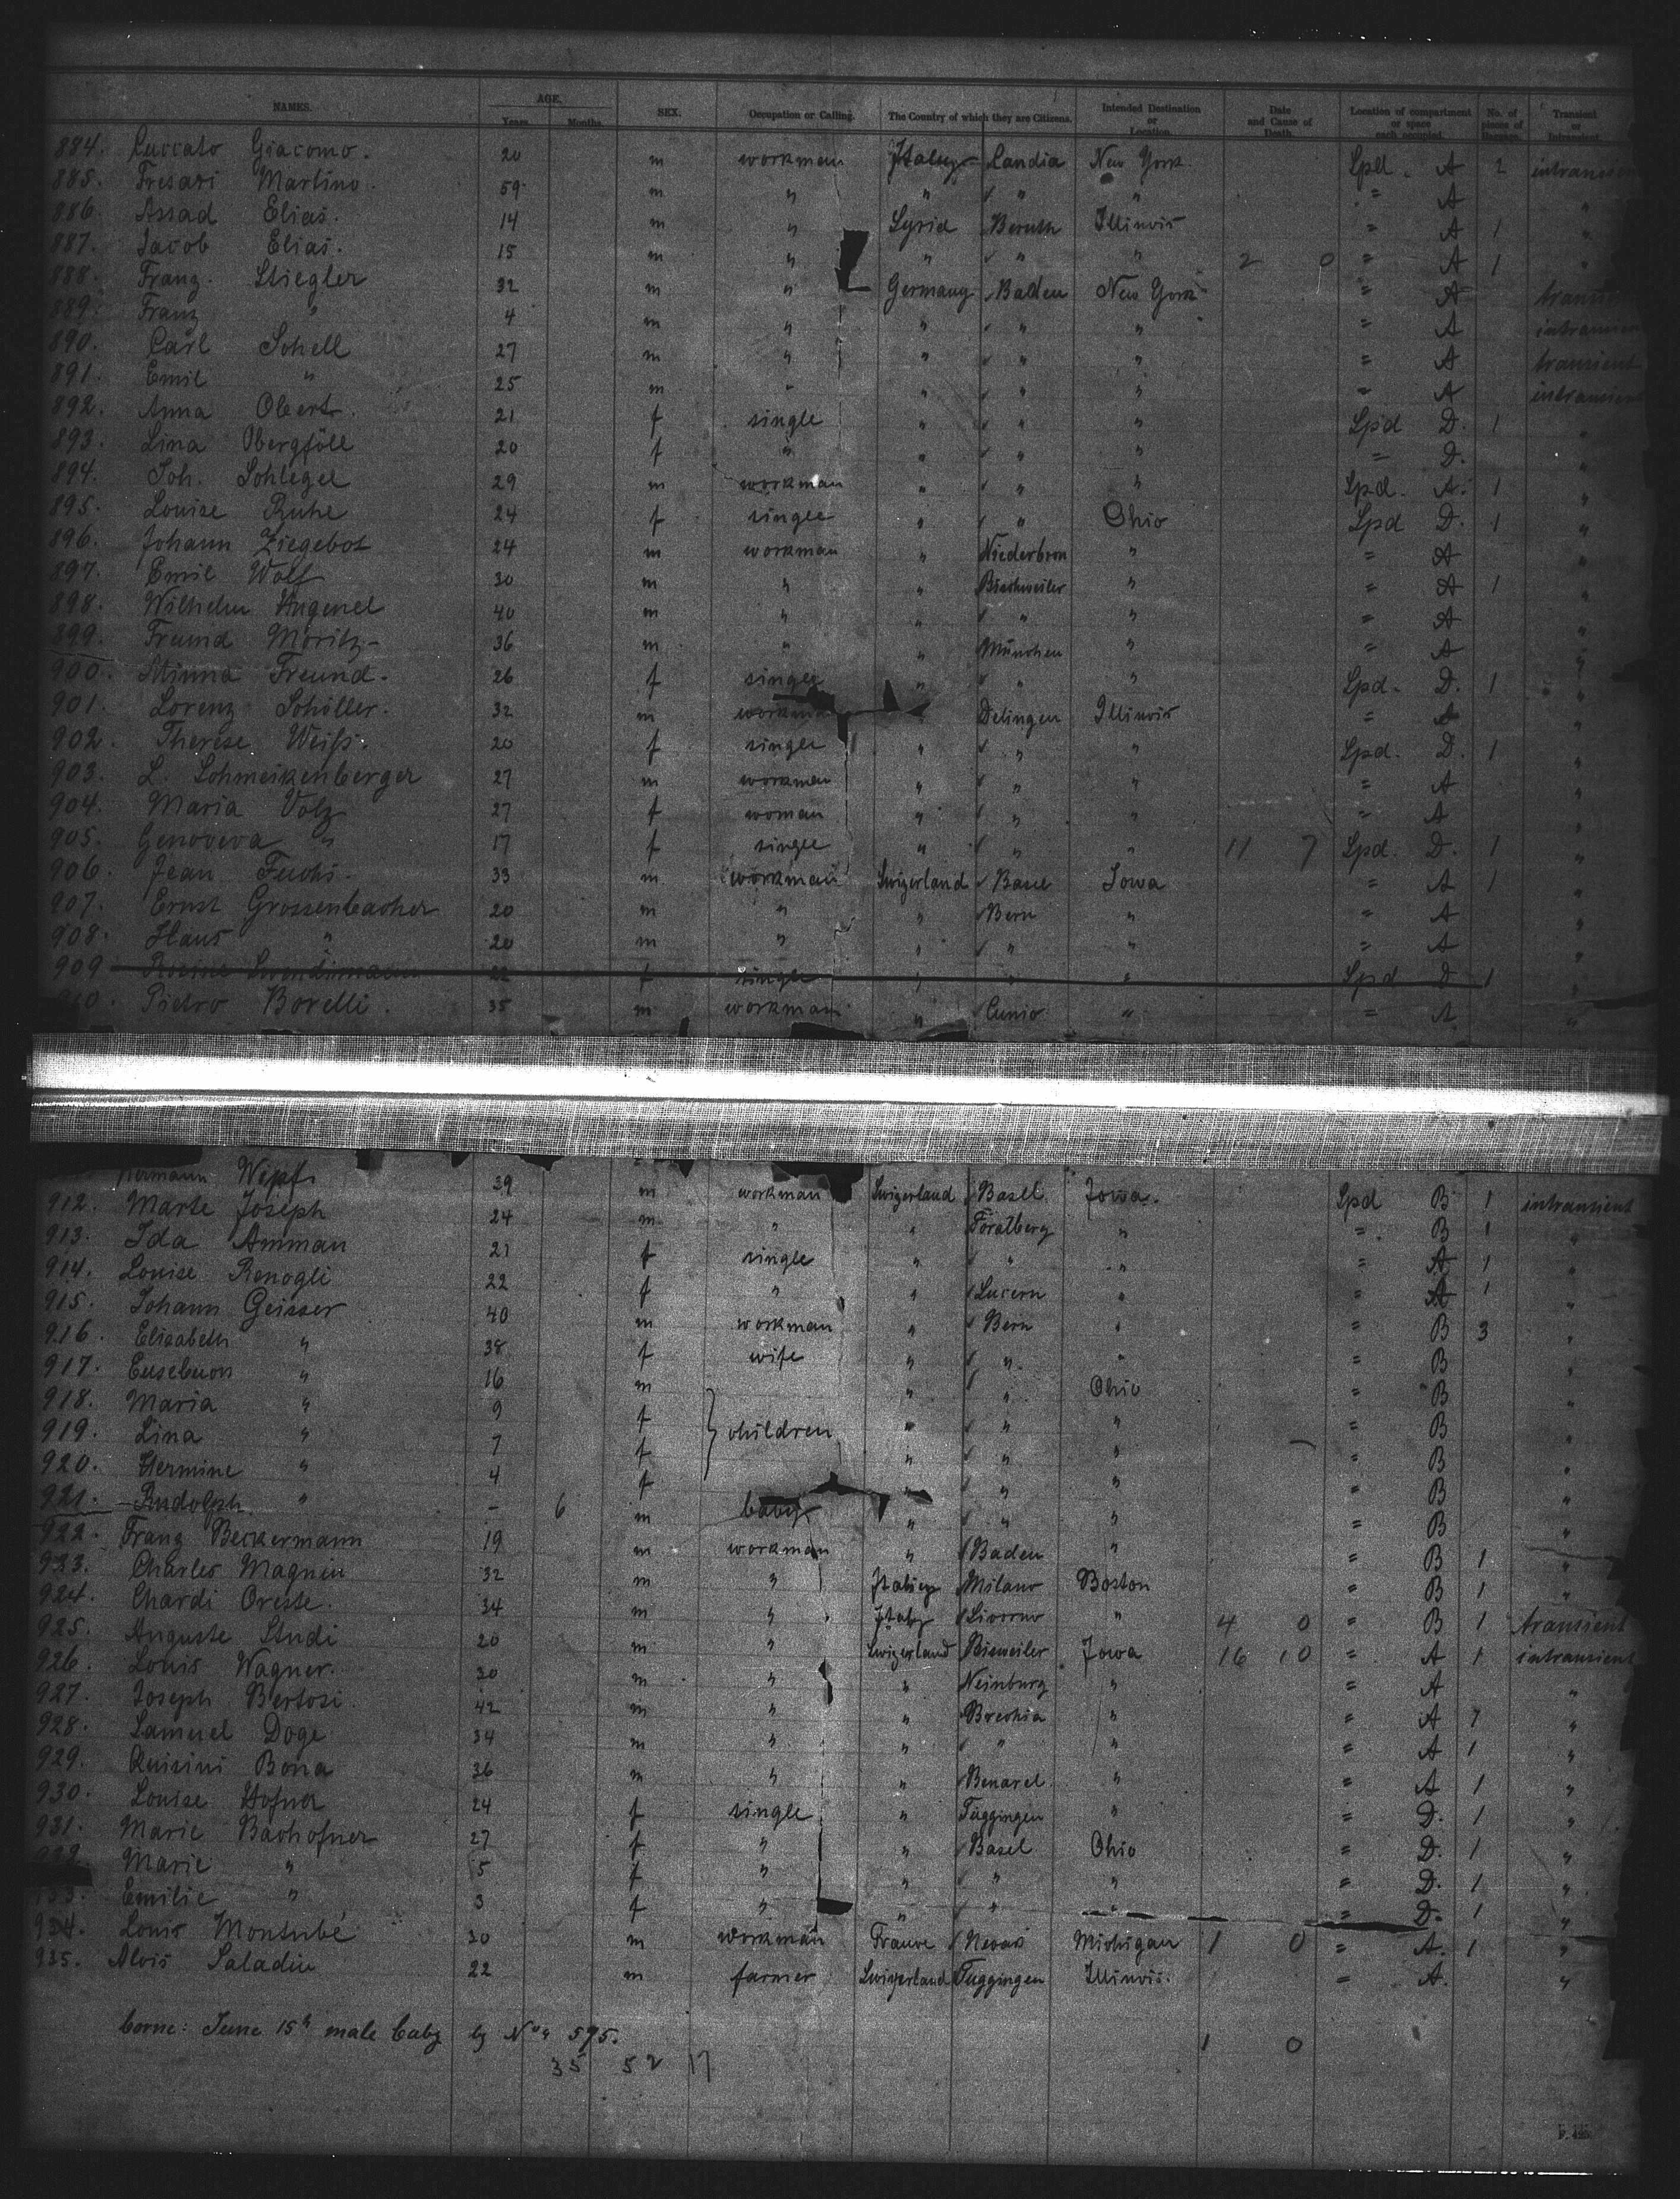 NAMES. AGE. Years. Months. SEX. Occupation or Calling. The Country of which they are Citizens. Intended Destination or Location. Date and Cause of Death. Location of compartment or space each occupied. No. of pieces of Transient or Intransient.
884. Giacomo. 20 m workman Italy Candia New York Spd. A 2
885. Martino. 59 m " " " " = A "
886. Assad Elias. 14 m " Syria Illinois = A 1 "
887. Jacob Elias. 15 m " " " " 2 0 = A 1 "
888. Franz. Stiegler 32 m " Germany Baden New York = A
889. Franz " 4 m " " " " = A
890. Carl Schell 27 m " " " " = A transient
891. Emil " 25 m " " " " = A intransient
892. Anna Obert. 21 f single " " " Spd D. 1 "
893. Lina Obergföll 20 f " " " " = D. "
894. Joh. Schlegel 29 m workman " " " Spd. A. 1 "
895. Louise Ruhe 24 f single " " Ohio Spd D. 1 "
896. Johann 24 m workman " Niederbron " = A "
897. Emil Wolf 30 m " " Bischweiler " = A 1 "
898. Wilhelm 40 m " " " " = A "
899. Freund Moritz 36 m " " München " = A "
900. Minna Freund. 26 f single " " " Spd. D. 1 "
901. Lorenz Schöller. 32 m workman Illinois = A "
902. Therese Weiß. 20 f single " " " Spd. D. 1 "
903. L. 27 m workman " " " = A "
904. Maria Volz 27 f woman " " " = A "
905. Genoveva " 17 f single " " " 11 7 Spd. D. 1 "
906. Jean Fuchs. 33 m workman Swizerland Basel Iowa = A 1 "
907. Ernst Grossenbacher 20 m " " Bern " = A "
908. Hans " 20 m " " " " = A "
909 22 f single " " " Spd D 1 "
Pietro Borelli. 35 m workman " Cunio " = A "
Hermann Wipf. 39 m workman Swizerland Basel. Iowa. Spd B 1 intransient
912. Marte Joseph 24 m " " Föralberg " = B 1 "
913. Ida Amman 21 f single " " " = A 1
914. Louise Renogli 22 f " " Lucern " = A 1 "
915. Johann Geisser 40 m workman " Bern " = B 3 "
916. Elisabeth " 38 f wife " " " = B "
917. " 16 m " " Ohio = B
918. Maria " 9 f children " " " = B "
919. Lina " 7 f " " " = B "
920. Hermine " 4 f " " " = B "
921. Rudolph " - 6 m baby " " " = B "
922. Franz Beckermann 19 m workman " Baden " = B 1 "
923. Charles Magnin 32 m " Milano Boston = B 1 "
924. Chardi Oreste. 34 m " Italy Livorno " 4 0 = B 1 transient
925. Auguste Studi 20 m " Swizerland Iowa 16 10 = A 1 intransient
926. Louis Wagner. 30 m " " Neinburg " = A "
927. Joseph Bertosi. 42 m " " Breshia " = A "
928. Samuel Doge 34 m " " " " = A 1 "
929. Bona 36 m " " " = A 1 "
930. Louise Hofner 24 f single " Tuggingen " = D. 1 "
931. Marie Bachofner 27 f " " Basel Ohio = D. 1 "
Marie " 5 f " " " " = D. 1 "
Emilie " 3 f " " " " = D. 1 "
934. Louis 20 m workman France Michigan 1 0 = A. 1 "
935. Alois Saladin 22 m farmer Swizerland Tuggingen Illinois. = A. "
borne: June 15h male baby by No 575. 1 0
35 52 17